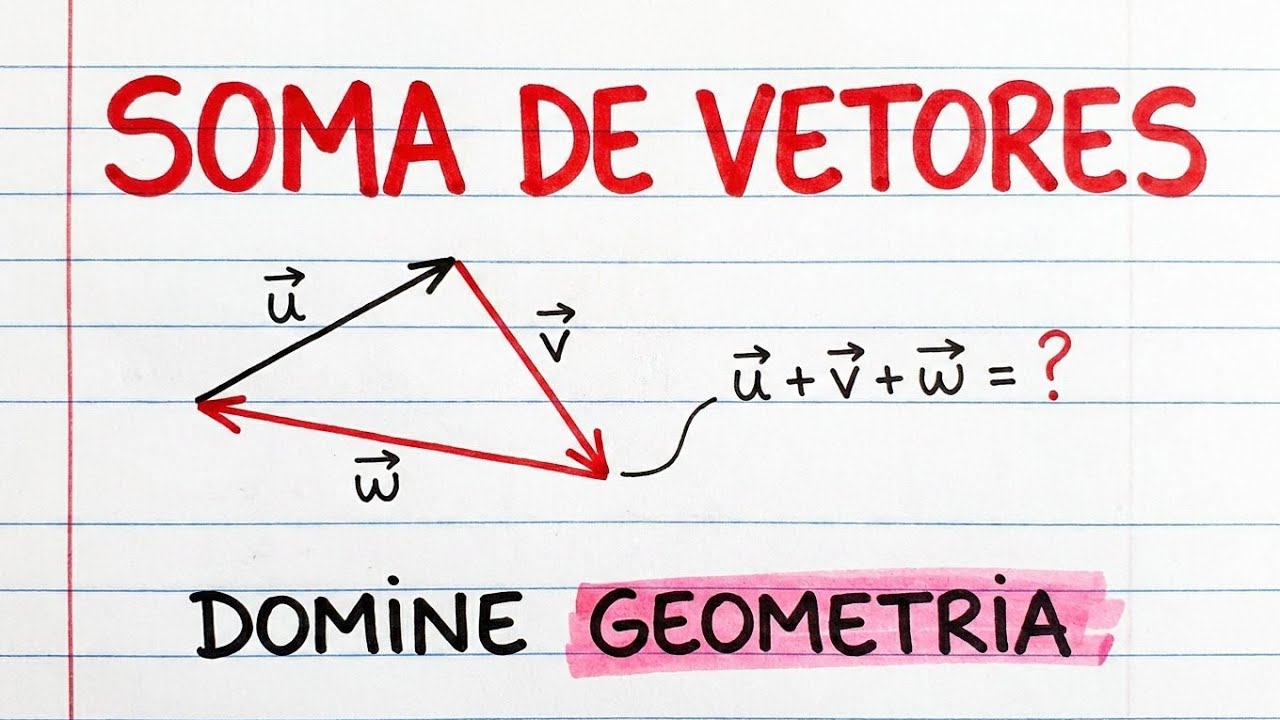 SOMA DE VETORES
u⃗
v⃗
u⃗ + v⃗ + w⃗ = ?
w⃗
DOMINE GEOMETRIA